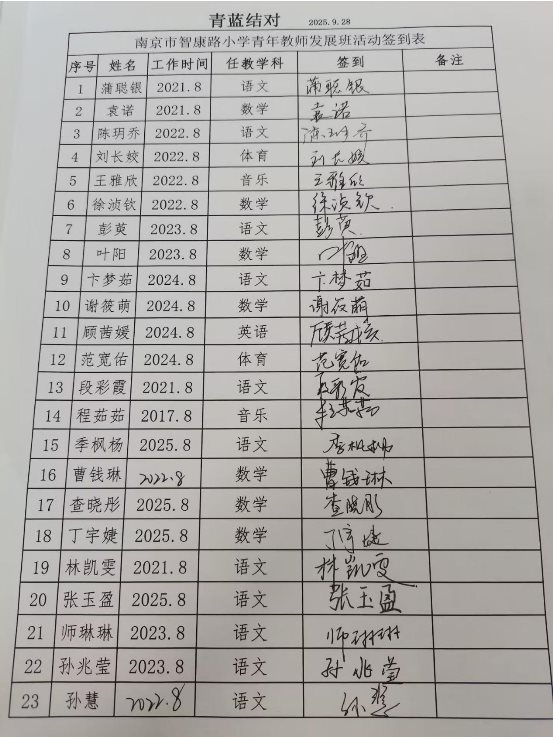 青蓝结对 2025.9.28
南京市智康路小学青年教师发展班活动签到表
序号 姓名 工作时间 任教学科 签到 备注
1 蒲聪银 2021.8 语文 蒲聪银
2 袁诺 2021.8 数学 袁诺
3 陈玥乔 2022.8 语文 陈玥乔
4 刘长姣 2022.8 体育 刘长姣
5 王雅欣 2022.8 音乐 王雅欣
6 徐浈钦 2022.8 数学 徐浈钦
7 彭萸 2023.8 语文 彭萸
8 叶阳 2023.8 数学 叶阳
9 卞梦茹 2024.8 语文 卞梦茹
10 谢筱萌 2024.8 数学 谢筱萌
11 顾茜媛 2024.8 英语 顾茜媛
12 范宽佑 2024.8 体育 范宽佑
13 段彩霞 2021.8 语文 段彩霞
14 程茹茹 2017.8 音乐 程茹茹
15 季枫杨 2025.8 语文 季枫杨
16 曹钱琳 2022.8 数学 曹钱琳
17 查晓彤 2025.8 数学 查晓彤
18 丁宇婕 2025.8 数学 丁宇婕
19 林凯雯 2021.8 语文 林凯雯
20 张玉盈 2025.8 语文 张玉盈
21 师琳琳 2023.8 语文 师琳琳
22 孙兆莹 2023.8 语文 孙兆莹
23 孙慧 2022.8 语文 孙慧